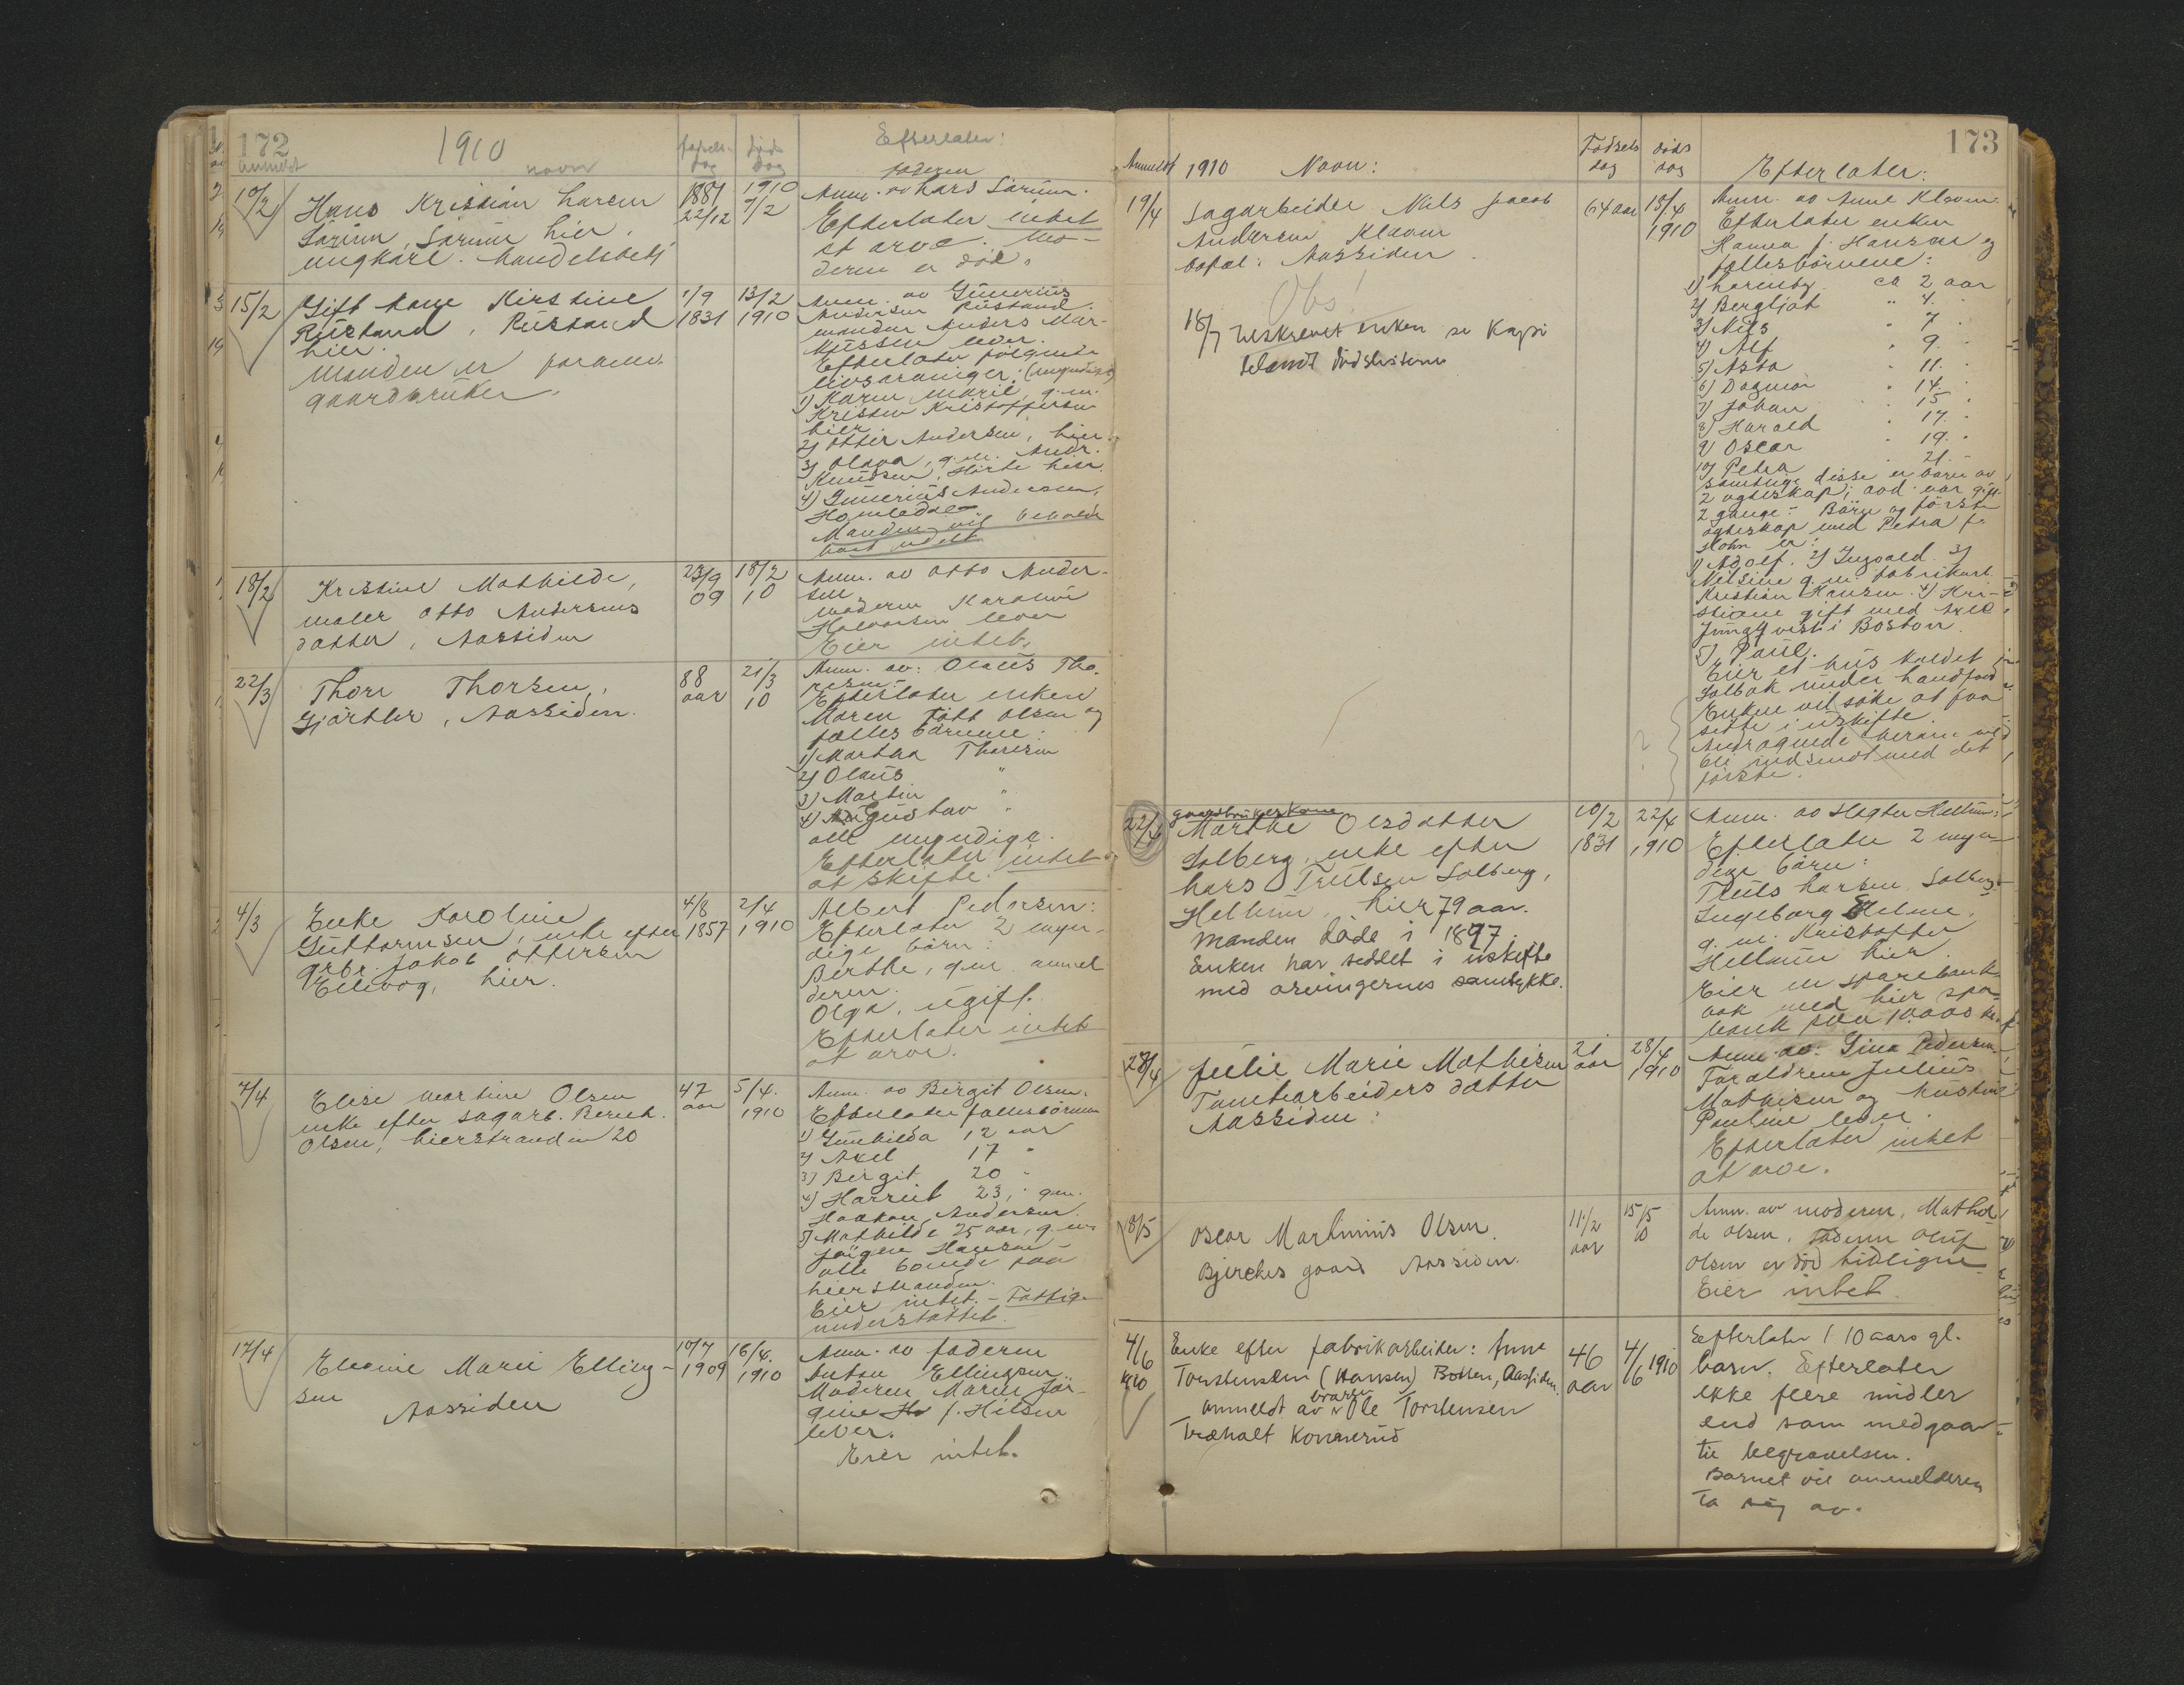 172
1910
anmeldt
navn
fødsels-
dag
døds
dag
Efterlater:
10/2
Hans Kristian Larsen
Lierun, hier.
ungkarl. handelsbetj
1881
22/12
1910
7/2
faderen
Anm. av Lars
Efterlater intet
at arve. Mo-
deren er død.
15/2
Gift kone Kirstine
Rustand, Rustand
hier.
Manden er
gaardbruker.
1/9
1831
13/2
1910
Anm. av Gunerius
Andersen Rustand.
manden Anders Mar-
kussen lever.
Efterlater følgende
livsarvinger: (myndige)
1) Karen Marie, g.m.
Kristen Kristoffersen
hier.
2) Otter Andersen, hier.
3) Olava, g.m. Andr.
Knudsen, hier.
4) Gunerius Andersen,
Homledal
Manden vil beholde
boet udelt
18/2
Kristine Mathilde,
maler Otto Andersens
datter, Aassiden
23/9
09
18/2
10
Anm. av Otto Ander-
sen
moderen Karoline
Halvorsen lever
Eier intet.
22/3
Thore Thorsen,
Gjørtler, Aassiden.
88
aar
21/3
10
Anm. av: Olaus Tho-
resen.
Efterlater enken
Maren født Olsen og
fælles børnene:
1) Martha Thoresen
2) Olaus "
3) Martin "
4) Gustav "
alle myndige.
Efterlater intet
at skifte.
4/3
Enke Karoline
Guttormsen, enke efter
grbr. Jakob Ottersen
Eilevog, hier.
4/8
1857
2/4
1910
Albert Pedersen:
Efterlater 2 myn-
dige børn:
Berthe, gm anmel
deren.
Olga, ugift.
Efterlater intet
at arve.
7/4
Elise Martine Olsen
enke efter sagarb. Bernh.
Olsen, hierstranden 20
47
aar
5/4.
1910
Anm. av Birgit Olsen.
Efterlater fællesbørnene
1) Gunhilda 12 aar
2) Axel 17 "
3) Birgit 20 "
4) Harriet 23, gm.
Haakon Andersen.
5) Mathilde 25 aar, g.m.
Jørgen Hansen
alle boende paa
hierstranden.
Eier intet. - Fattig-
understøttet.
17/4
Eleonie Marie Elling-
sen
Aassiden
10/7
1909
16/4.
1910
Anm. av faderen
Anton Ellingsen
Moderen Maren Jør-
gine f. Nilsen
lever.
Eier intet.
173
Anmeldt
1910 Navn:
Fødsels
dag
døds
dag
Efterlater:
19/4
Sagarbeider Nils Jacob
Andersen Klaven
bopæl: Aassiden.
Obs!
18/7 Utskrevet enken se Kopi
blandt dødslisterne
64 aar
18/4
1910
Anm. av Anne Klaven.
Efterlater enken
Hanna f. Hansen og
fællesbørnene:
1) ca 2 aar
2) Bergljot " 4 "
3) Nils " 7 "
4) Alf " 9 "
5) Asta " 11 "
6) Dagmar " 14 "
7) Johan " 15 "
8) Harald " 17 "
9) Oscar " 19 "
10) Petra " 21 "
samtlige disse er børn av
2 egteskap; avd. var gift
2 gange. - Børn av første
egteskap med Petra f.
Holm er:
1) Adolf. 2) Ingvald. 3)
Nilsine g.m. fabrikarb.
Kristian Hansen. 4) Kri-
stiane gift med Axel
Ljungqvist i Boston.
5) Paul.
Eier et hus kaldet
Solbak under Landfald
Enken vil søke at faa
sitte i uskifte.
Andragende herom vil
bli indsendt med det
første.
22/4
gaardbrukerkone
Marthe Olsdatter
Solberg, enke efter
Lars Trulsen Solberg,
Hellum, hier, 79 aar.
Manden døde i 1897.
Enken har siddet i uskifte
med arvingernes samtykke.
10/2
1831
22/4
1910
Anm. av Hellum:
Efterlater 2 myn-
dige børn:
Truls Larsen Solberg
Ingeborg Helene,
g.m. Kristoffer
Hellum hier.
Eier en sparebank-
bok med hier spa-
bank paa 10.000 kr.
28/4
Julie Marie Mathisen
Tomtearbeiders datter
Aassiden
21
aar
28/4
1910
Anm. av: Gina Pedersen.
Forældrene Julius
Mathisen og hustru
Pauline lever.
Efterlater intet
at arve.
18/5
Oscar Martinius Olsen.
Bjerckes gaard Aassiden.
11 1/2
aar
15/5
10
Anm. av moderen, Mathil
de Olsen. Faderen Oluf
Olsen er død tidligere
Eier intet.
4/6
1910
Enke efter fabrikarbeider: Anne
Torstensen (Hansen) Botten, Aassiden.
anmeldt av broren Ole Torstensen
Træhalt Konnerud
46
aar
4/6 1910
Efterlater 1 10 aars gl.
barn. Efterlater
ikke flere midler
end som medgaar
til begravelsen.
Barnet vil anmelderen
ta sig av.